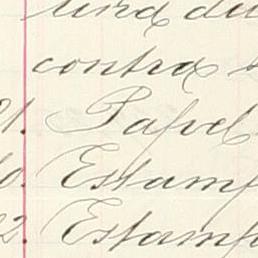 una du
contra
21. Papel
0. Estamp
22. Estamp